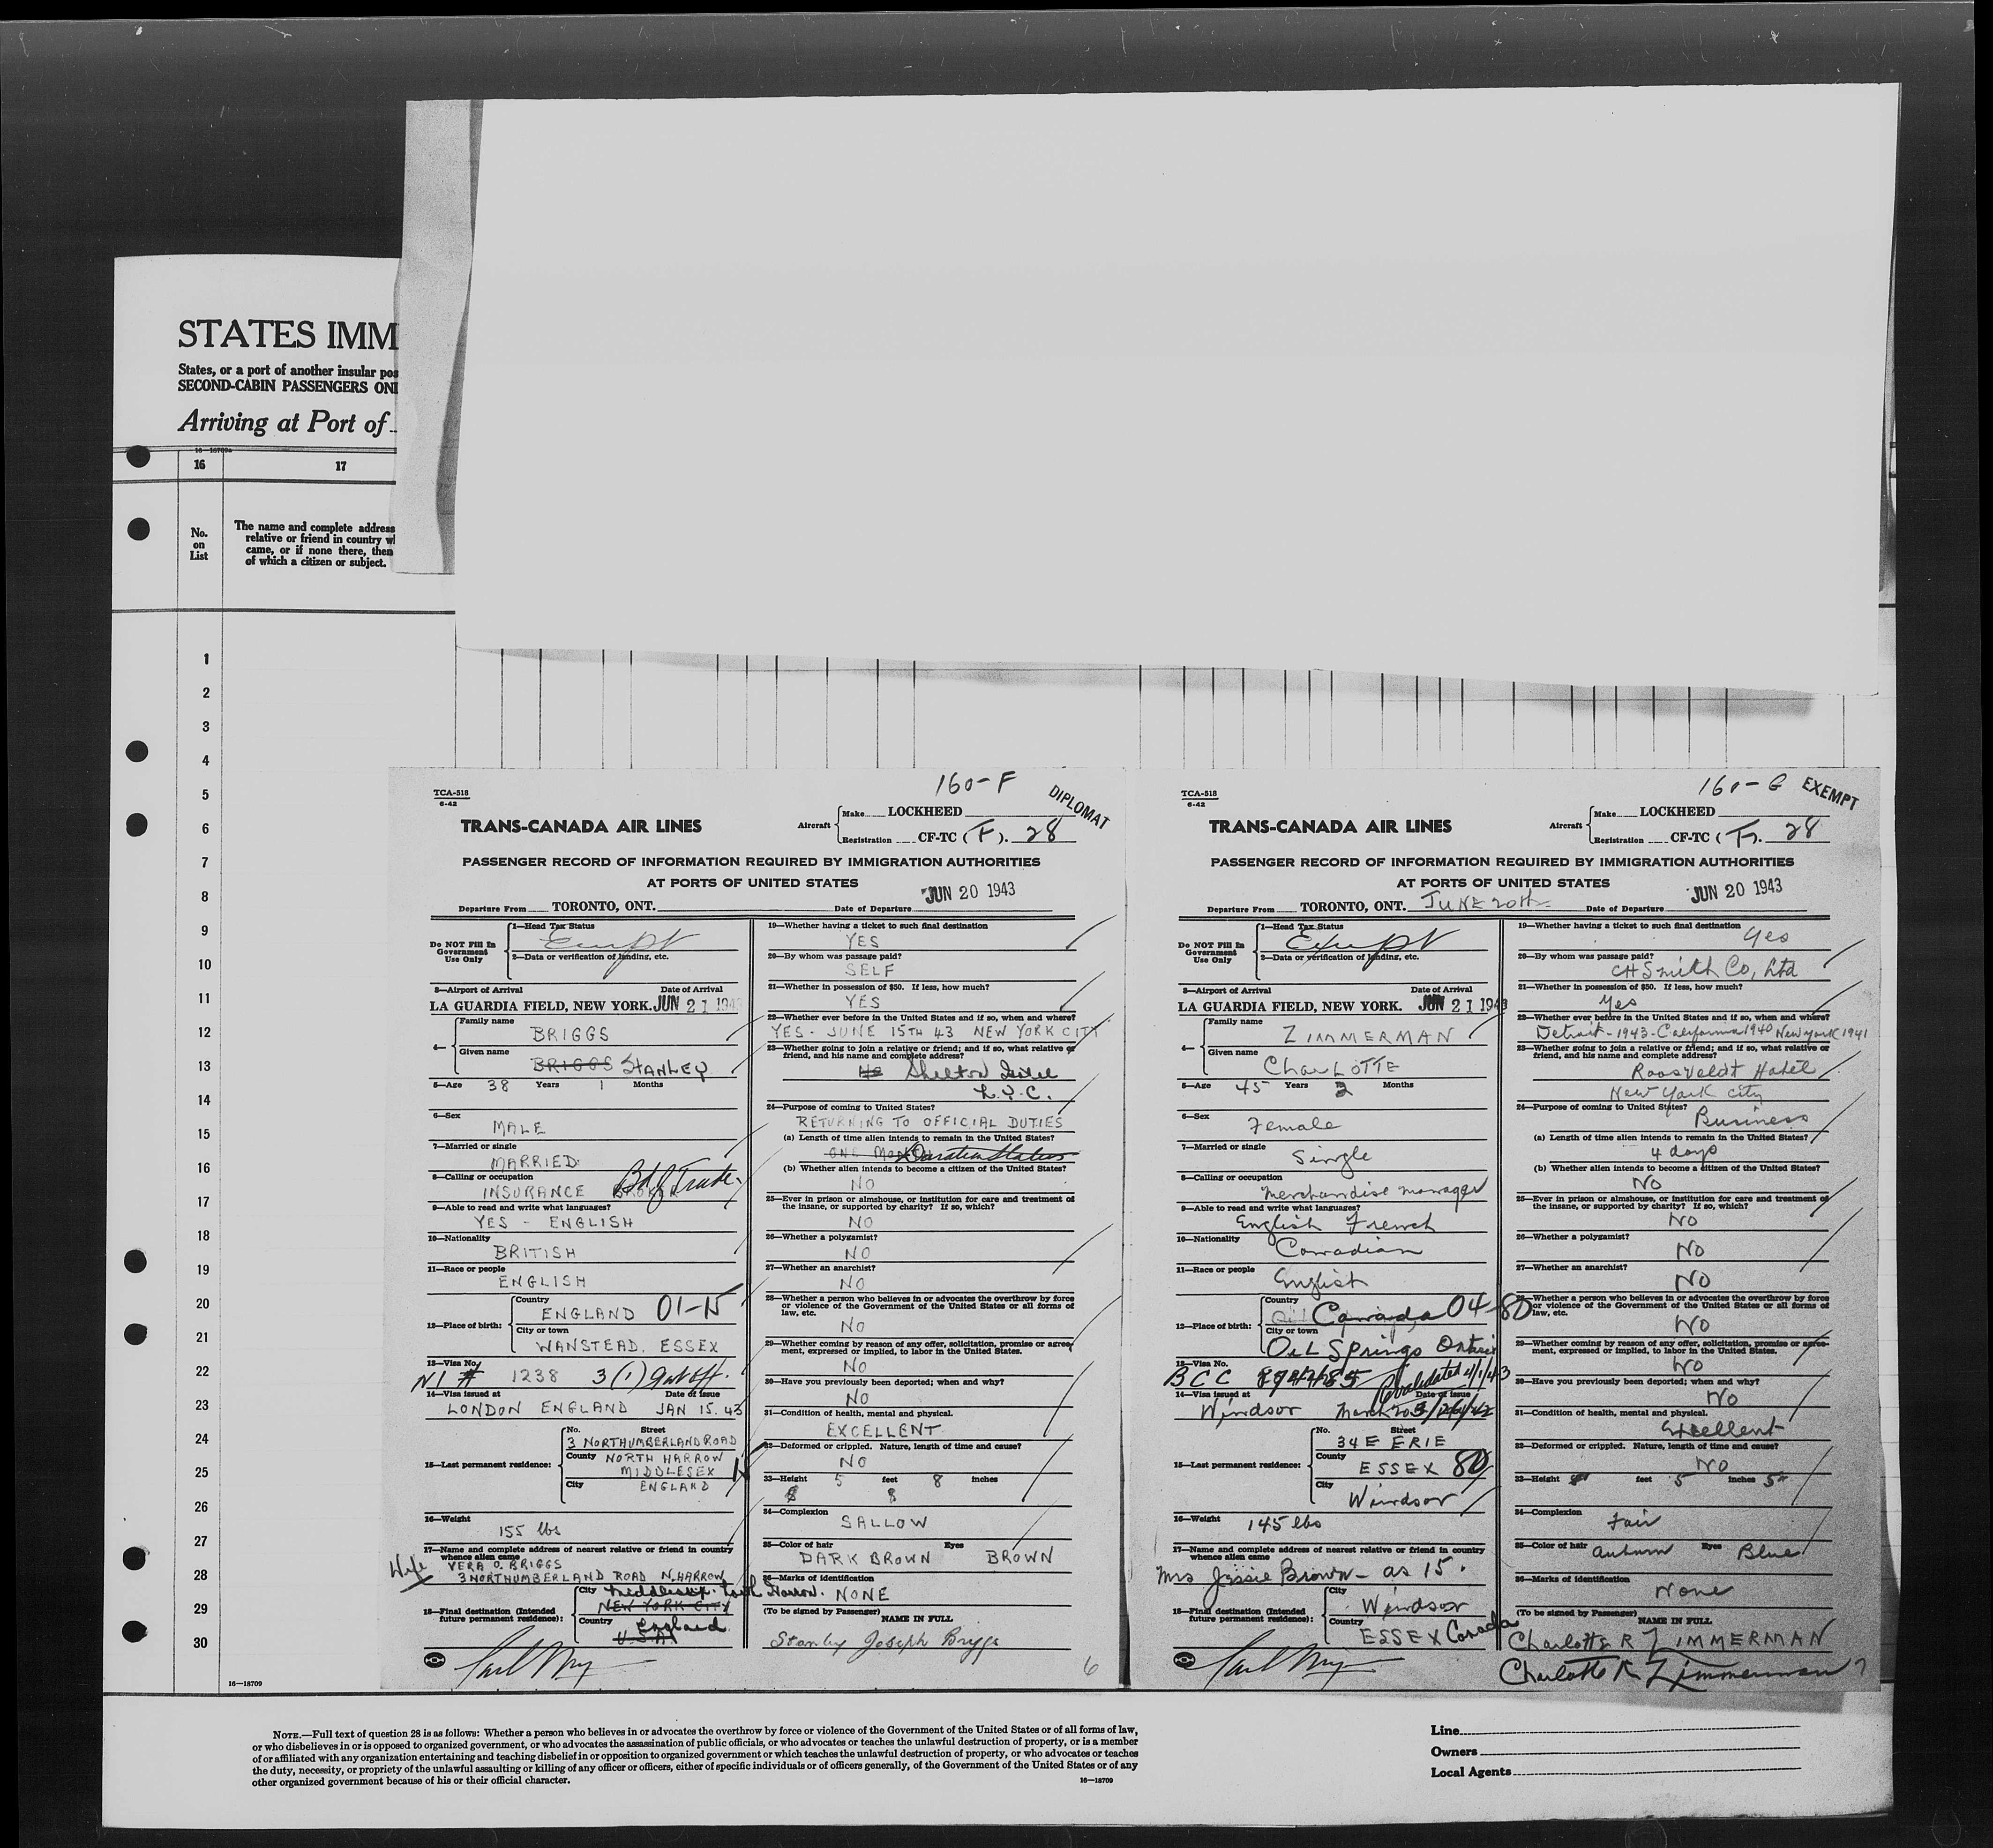 STATES IMM
States, or a port of another insular pos
SECOND-CABIN PASSENGERS ONL
Arriving at Port of
16 17
No. on List
The name and complete address
relative or friend in country wh
came, or if none there, then
of which a citizen or subject.
1
2
3
4
5
6
7
8
9
10
11
12
13
14
15
16
17
18
19
20
21
22
23
24
25
26
27
28
29
30
16—18709
TCA-518
6-42
160-F
DIPLOMAT
TRANS-CANADA AIR LINES
Aircraft Make LOCKHEED
Registration CF-TC (F). 28
PASSENGER RECORD OF INFORMATION REQUIRED BY IMMIGRATION AUTHORITIES
AT PORTS OF UNITED STATES
JUN 20 1943
Departure From TORONTO, ONT. Date of Departure
Do NOT Fill In Government Use Only
1—Head Tax Status
Exempt
2—Data or verification of landing, etc.
3—Airport of Arrival Date of Arrival
LA GUARDIA FIELD, NEW YORK. JUN 21 1943
4— Family name
BRIGGS
Given name
BRIGGS STANLEY
5—Age 38 Years 1 Months
6—Sex
MALE
7—Married or single
MARRIED
8—Calling or occupation
INSURANCE BROKER Bd of Trade.
9—Able to read and write what languages?
YES - ENGLISH
10—Nationality
BRITISH
11—Race or people
ENGLISH
12—Place of birth: Country
ENGLAND 01-N
City or town
WANSTEAD. ESSEX
13—Visa No.
NI # 1238 3(1) Govt Off.
14—Visa issued at Date of issue
LONDON ENGLAND JAN 15. 43
15—Last permanent residence: No. Street
3 NORTHUMBERLAND ROAD
County NORTH HARROW
MIDDLESEX
City ENGLAND
16—Weight
155 lbs
17—Name and complete address of nearest relative or friend in country
whence alien came
Wife VERA O. BRIGGS
3 NORTHUMBERLAND ROAD N. HARROW
18—Final destination (Intended future permanent residence): City Middlesex. North Harrow.
NEW YORK CITY
Country England
U.S.A.
19—Whether having a ticket to such final destination
YES
20—By whom was passage paid?
SELF
21—Whether in possession of $50. If less, how much?
YES
22—Whether ever before in the United States and if so, when and where?
YES - JUNE 15TH 43 NEW YORK CITY
23—Whether going to join a relative or friend; and if so, what relative or
friend, and his name and complete address?
No Shelton Hotel
N.Y.C.
24—Purpose of coming to United States?
RETURNING TO OFFICIAL DUTIES
(a) Length of time alien intends to remain in the United States?
ONE MONTH Duration Status
(b) Whether alien intends to become a citizen of the United States?
NO
25—Ever in prison or almshouse, or institution for care and treatment of
the insane, or supported by charity? If so, which?
NO
26—Whether a polygamist?
NO
27—Whether an anarchist?
NO
28—Whether a person who believes in or advocates the overthrow by force
or violence of the Government of the United States or all forms of
law, etc.
NO
29—Whether coming by reason of any offer, solicitation, promise or agree-
ment, expressed or implied, to labor in the United States.
NO
30—Have you previously been deported; when and why?
NO
31—Condition of health, mental and physical.
EXCELLENT
32—Deformed or crippled. Nature, length of time and cause?
NO
33—Height 5 feet 8 inches
8 8
34—Complexion
SALLOW
35—Color of hair Eyes
DARK BROWN BROWN
36—Marks of identification
NONE
(To be signed by Passenger)
NAME IN FULL
Stanley Joseph Briggs
6
TCA-518
6-42
160-G
EXEMPT
TRANS-CANADA AIR LINES
Aircraft Make LOCKHEED
Registration CF-TC (T). 28
PASSENGER RECORD OF INFORMATION REQUIRED BY IMMIGRATION AUTHORITIES
AT PORTS OF UNITED STATES
JUN 20 1943
Departure From TORONTO, ONT. JUNE 20th Date of Departure
Do NOT Fill In Government Use Only
1—Head Tax Status
Exempt
2—Data or verification of landing, etc.
3—Airport of Arrival Date of Arrival
LA GUARDIA FIELD, NEW YORK. JUN 21 1943
4— Family name
ZIMMERMAN
Given name
CharLOTTE
5—Age 45 Years 2 Months
6—Sex
Female
7—Married or single
Single
8—Calling or occupation
Merchandise manager
9—Able to read and write what languages?
English French
10—Nationality
Canadian
11—Race or people
English
12—Place of birth: Country
Canada 04-80
City or town
OiL Springs Ontario
13—Visa No.
BCC validated 4/1/43
14—Visa issued at Date of issue
Windsor March 20
15—Last permanent residence: No. Street
34 E ERIE
County
ESSEX 80
City
Windsor
16—Weight
145 lbs
17—Name and complete address of nearest relative or friend in country
whence alien came
Mrs Jessie Brown - as 15.
18—Final destination (Intended future permanent residence): City
Windsor
Country
ESSEX Canada
19—Whether having a ticket to such final destination
Yes
20—By whom was passage paid?
CH Smith Co, Ltd
21—Whether in possession of $50. If less, how much?
Yes
22—Whether ever before in the United States and if so, when and where?
Detroit-1943-California 1940 New York 1941
23—Whether going to join a relative or friend; and if so, what relative or
friend, and his name and complete address?
Roosveldt Hotel
New York city
24—Purpose of coming to United States?
Business
(a) Length of time alien intends to remain in the United States?
4 days
(b) Whether alien intends to become a citizen of the United States?
NO
25—Ever in prison or almshouse, or institution for care and treatment of
the insane, or supported by charity? If so, which?
NO
26—Whether a polygamist?
NO
27—Whether an anarchist?
NO
28—Whether a person who believes in or advocates the overthrow by force
or violence of the Government of the United States or all forms of
law, etc.
NO
29—Whether coming by reason of any offer, solicitation, promise or agree-
ment, expressed or implied, to labor in the United States.
NO
30—Have you previously been deported; when and why?
NO
31—Condition of health, mental and physical.
Excellent
32—Deformed or crippled. Nature, length of time and cause?
NO
33—Height feet 5 inches 5
34—Complexion
Fair
35—Color of hair auburn Eyes Blue
36—Marks of identification
None
(To be signed by Passenger)
NAME IN FULL
Charlotte R ZIMMERMAN
Charlotte R Zimmerman
7
NOTE.—Full text of question 28 is as follows: Whether a person who believes in or advocates the overthrow by force or violence of the Government of the United States or of all forms of law,
or who disbelieves in or is opposed to organized government, or who advocates the assassination of public officials, or who advocates or teaches the unlawful destruction of property, or is a member
of or affiliated with any organization entertaining and teaching disbelief in or opposition to organized government or which teaches the unlawful destruction of property, or who advocates or teaches
the duty, necessity, or propriety of the unlawful assaulting or killing of any officer or officers, either of specific individuals or of officers generally, of the Government of the United States or of any
other organized government because of his or their official character.
16—18709
Line
Owners
Local Agents